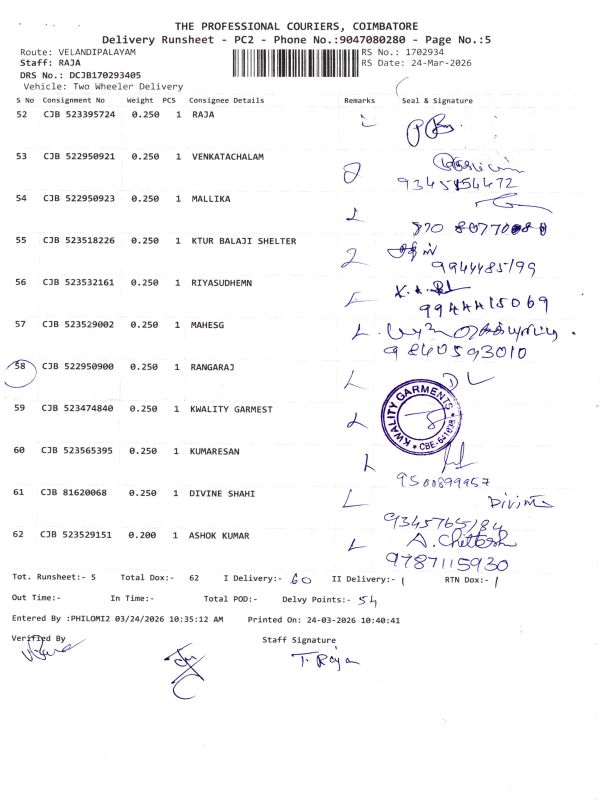 THE PROFESSIONAL COURIERS, COIMBATORE
Delivery Runsheet - PC2 - Phone No.:9047080280 - Page No.:5
Route: VELANDIPALAYAM RS No.: 1702934
Staff: RAJA RS Date: 24-Mar-2026
DRS No.: DCJB170293405
Vehicle: Two Wheeler Delivery
S No Consignment No Weight PCS Consignee Details Remarks Seal & Signature
52 CJB 523395724 0.250 1 RAJA
53 CJB 522950921 0.250 1 VENKATACHALAM
54 CJB 522950923 0.250 1 MALLIKA
55 CJB 523518226 0.250 1 KTUR BALAJI SHELTER
9944485199
56 CJB 523532161 0.250 1 RIYASUDHEMN
9944415069
57 CJB 523529002 0.250 1 MAHESG
9840593010
58 CJB 522950900 0.250 1 RANGARAJ
59 CJB 523474840 0.250 1 KWALITY GARMEST
KWALITY GARMENTS
60 CJB 523565395 0.250 1 KUMARESAN
9500899957
61 CJB 81620068 0.250 1 DIVINE SHAHI
9345765184
62 CJB 523529151 0.200 1 ASHOK KUMAR
9787115930
Tot. Runsheet:- 5 Total Dox:- 62 I Delivery:- 60 II Delivery:- 1 RTN Dox:- 1
Out Time:- In Time:- Total POD:- Delvy Points:- 54
Entered By :PHILOMI2 03/24/2026 10:35:12 AM Printed On: 24-03-2026 10:40:41
Verified By Staff Signature
T. Raja